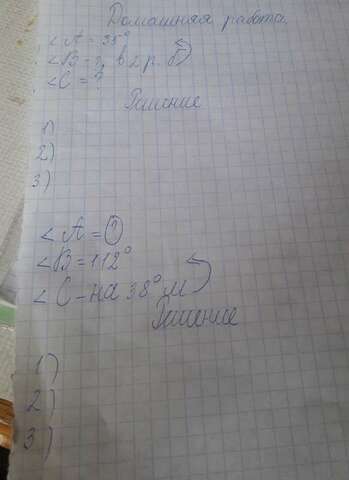 Домашняя работа
∠A = 35°
∠B = ?, в 2 р. б
∠C = ?
Решение
1)
2)
3)
∠A = ?
∠B = 112°
∠C - на 38° м
Решение
1)
2)
3)